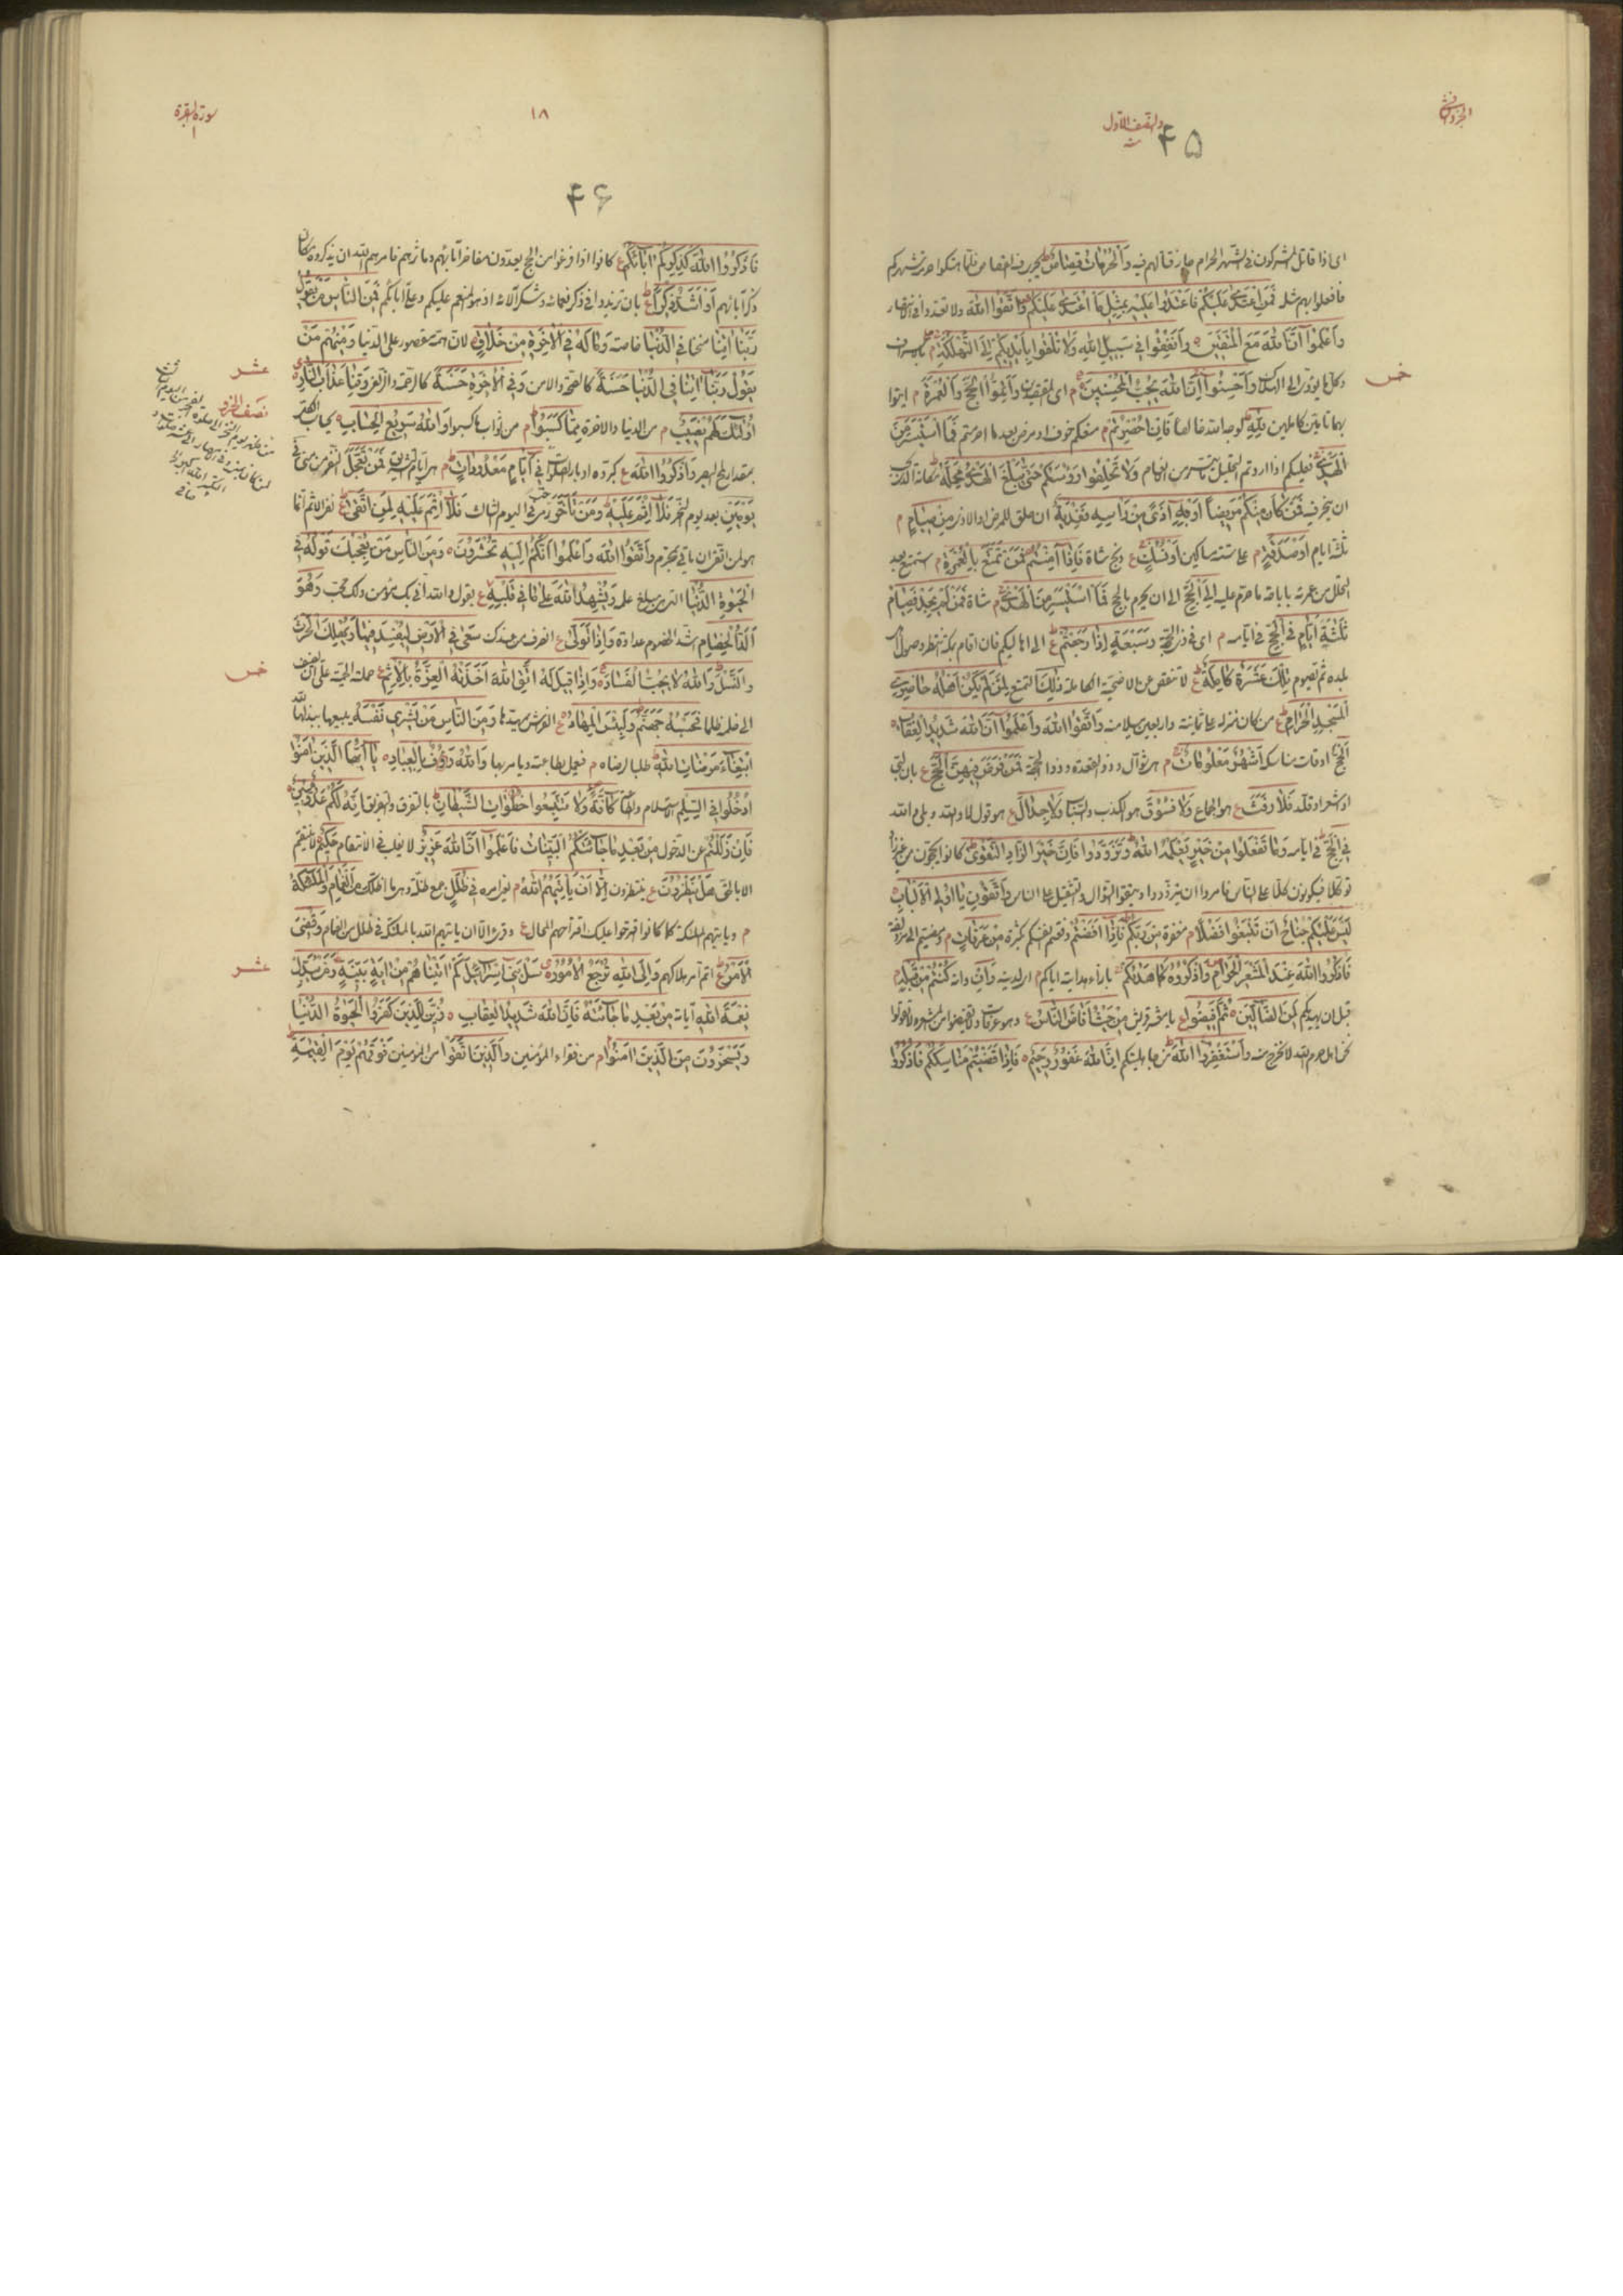 ۴۵
ای اذا قاتل المشرکون فی الشهر الحرام جاز قتالهم فیه وَالْحُرُمَاتُ قِصَاصٌ
فافعلوا بهم مثله فَمَنِ اعْتَدَى عَلَيْكُمْ فَاعْتَدُوا عَلَيْهِ بِمِثْلِ مَا اعْتَدَى عَلَيْكُمْ وَاتَّقُوا اللّٰهَ ولا تعتدوا فی الانتصار
وَاعْلَمُوا اَنَّ اللّٰهَ مَعَ الْمُتَّقِينَ ه وَاَنْفِقُوا فِي سَبِيلِ اللّٰهِ وَلَا تُلْقُوا بِاَيْدِيكُمْ اِلَى التَّهْلُكَةِ م
وَاَحْسِنُوا اِنَّ اللّٰهَ يُحِبُّ الْمُحْسِنِينَ م ای المقتصدین وَاَتِمُّوا الْحَجَّ وَالْعُمْرَةَ م ایتوا
بهما تامین کاملین لِلّٰهِ لوجه الله خالصا فَاِنْ اُحْصِرْتُمْ م منعکم خوف او مرض بعد ما احرمتم فَمَا اسْتَيْسَرَ مِنَ
الْهَدْيِ فعلیکم اذا اردتم التحلیل ما تیسر من الانعام وَلَا تَحْلِقُوا رُؤُسَكُمْ حَتّٰى يَبْلُغَ الْهَدْيُ مَحِلَّهُ
ان ینحر فیه فَمَنْ كَانَ مِنْكُمْ مَرِيضًا اَوْ بِهِ اَذًى مِنْ رَأْسِهِ فَفِدْيَةٌ ان حلق للمرض والاذی مِنْ صِيَامٍ م
ثلثة ایام اَوْ صَدَقَةٍ م علی ستة مساکین اَوْ نُسُكٍ ع ذبح شاة فَاِذَا اَمِنْتُمْ فَمَنْ تَمَتَّعَ بِالْعُمْرَةِ م استمتع بعد
التحلل من عمرته باباحة ما حرم علیه اِلَى الْحَجِّ الی ان یحرم بالحج فَمَا اسْتَيْسَرَ مِنَ الْهَدْيِ م شاة فَمَنْ لَمْ يَجِدْ فَصِيَامُ
ثَلٰثَةِ اَيَّامٍ فِي الْحَجِّ فی ایامه م ای فی ذی الحجة وَسَبْعَةٍ اِذَا رَجَعْتُمْ ع الی اهالیکم فان اقام بمکة ینتظر وصول اهل
بلده ثم یصوم تِلْكَ عَشَرَةٌ كَامِلَةٌ ع لا تنقص عن الاضحیة الکاملة ذٰلِكَ التمتع لِمَنْ لَمْ يَكُنْ اَهْلُهُ حَاضِرِي
الْمَسْجِدِ الْحَرَامِ ع من کان منزله علی ثمانیة واربعین میلا منه وَاتَّقُوا اللّٰهَ وَاعْلَمُوا اَنَّ اللّٰهَ شَدِيدُ الْعِقَابِ ه
اَلْحَجُّ اوقات مناسکه اَشْهُرٌ مَعْلُومَاتٌ م هی شوال وذو القعدة وذو الحجة فَمَنْ فَرَضَ فِيهِنَّ الْحَجَّ ع بان لبی
او اشعر او قلد فَلَا رَفَثَ ع هو الجماع وَلَا فُسُوقَ هو الکذب والسباب وَلَا جِدَالَ ع هو قول لا والله وبلی والله
فِي الْحَجِّ فی ایامه وَمَا تَفْعَلُوا مِنْ خَيْرٍ يَعْلَمْهُ اللّٰهُ وَتَزَوَّدُوا فَاِنَّ خَيْرَ الزَّادِ التَّقْوٰى کانوا یحجون من غیر زاد
توکلا فیکونون کلا علی الناس فامروا ان یتزودوا ویتقوا السؤال والتثقیل علی الناس وَاتَّقُونِ يَا اُولِي الْاَلْبَابِ ه
لَيْسَ عَلَيْكُمْ جُنَاحٌ اَنْ تَبْتَغُوا فَضْلًا م مغفرة مِنْ رَبِّكُمْ فَاِذَا اَفَضْتُمْ دفعتم انفسکم کثرة مِنْ عَرَفَاتٍ م
فَاذْكُرُوا اللّٰهَ عِنْدَ الْمَشْعَرِ الْحَرَامِ وَاذْكُرُوهُ كَمَا هَدٰيكُمْ بازاء هدایته ایاکم وَاِنْ وانه كُنْتُمْ مِنْ قَبْلِهِ م
قبل ان یهدیکم لَمِنَ الضَّالِّينَ ه ثُمَّ اَفِيضُوا ع یا معشر قریش مِنْ حَيْثُ اَفَاضَ النَّاسُ ع
وَاسْتَغْفِرُوا اللّٰهَ من جاهلیتکم اِنَّ اللّٰهَ غَفُورٌ رَحِيمٌ ه فَاِذَا قَضَيْتُمْ مَنَاسِكَكُمْ فَاذْكُرُوا
خمس
سورة البقرة
۱۸
۴۶
فَاذْكُرُوا اللّٰهَ كَذِكْرِكُمْ اٰبَاءَكُمْ ع کانوا اذا فرغوا من الحج یعدّون مفاخر آبائهم ومآثرهم فامرهم الله ان یذکروه مکان
ذکر آبائهم اَوْ اَشَدَّ ذِكْرًا ع بان تزیدوا فی ذکر نعمائه وشکر آلائه اذ هو المنعم علیکم وعلی آبائکم فَمِنَ النَّاسِ مَنْ يَقُولُ
رَبَّنَا اٰتِنَا منحا فِي الدُّنْيَا خاصة وَمَا لَهُ فِي الْاٰخِرَةِ مِنْ خَلَاقٍ لان همه مقصور علی الدنیا وَمِنْهُمْ مَنْ
يَقُولُ رَبَّنَا اٰتِنَا فِي الدُّنْيَا حَسَنَةً کالصحة والامن وَفِي الْاٰخِرَةِ حَسَنَةً کالرحمة والزلفی وَقِنَا عَذَابَ النَّارِ
اُولٰئِكَ لَهُمْ نَصِيبٌ م من الدنیا والاخرة مِمَّا كَسَبُوا م من ثواب ما کسبوا وَاللّٰهُ سَرِيعُ الْحِسَابِ
بمقدار لمح البصر وَاذْكُرُوا اللّٰهَ ع کبروه ادبار الصلوات فِي اَيَّامٍ مَعْدُودَاتٍ م هی ایام التشریق فَمَنْ تَعَجَّلَ النفر من منی فِي
يَوْمَيْنِ بعد یوم النحر فَلَا اِثْمَ عَلَيْهِ وَمَنْ تَاَخَّرَ الیوم الثالث فَلَا اِثْمَ عَلَيْهِ لِمَنِ اتَّقٰى ع
وَاتَّقُوا اللّٰهَ وَاعْلَمُوا اَنَّكُمْ اِلَيْهِ تُحْشَرُونَ ه وَمِنَ النَّاسِ مَنْ يُعْجِبُكَ قَوْلُهُ فِي
الْحَيٰوةِ الدُّنْيَا وَيُشْهِدُ اللّٰهَ عَلٰى مَا فِي قَلْبِهِ ع یقول والله انی بک مؤمن ولک محب وَهُوَ
اَلَدُّ الْخِصَامِ اشد الخصوم عداوة وَاِذَا تَوَلّٰى ع انصرف من عندک سَعٰى فِي الْاَرْضِ لِيُفْسِدَ فِيهَا وَيُهْلِكَ الْحَرْثَ
وَالنَّسْلَ وَاللّٰهُ لَا يُحِبُّ الْفَسَادَ ه وَاِذَا قِيلَ لَهُ اتَّقِ اللّٰهَ اَخَذَتْهُ الْعِزَّةُ بِالْاِثْمِ ع
فَحَسْبُهُ جَهَنَّمُ وَلَبِئْسَ الْمِهَادُ ع الفرش یمهدها وَمِنَ النَّاسِ مَنْ يَشْرِي نَفْسَهُ یبیعها ببذلها لله
ابْتِغَاءَ مَرْضَاتِ اللّٰهِ طلبا لرضاه م فیعمل بطاعته ویامر بها وَاللّٰهُ رَؤُفٌ بِالْعِبَادِ ه يَا اَيُّهَا الَّذِينَ اٰمَنُوا
ادْخُلُوا فِي السِّلْمِ الاسلام والطاعة كَافَّةً وَلَا تَتَّبِعُوا خُطُوَاتِ الشَّيْطَانِ بالتفرق والتفریق اِنَّهُ لَكُمْ عَدُوٌّ مُبِينٌ
فَاِنْ زَلَلْتُمْ عن الدخول مِنْ بَعْدِ مَا جَاءَتْكُمُ الْبَيِّنَاتُ فَاعْلَمُوا اَنَّ اللّٰهَ عَزِيزٌ لا یغلب فی الانتقام حَكِيمٌ لا ینتقم
الا بالحق هَلْ يَنْظُرُونَ ع ینتظرون اِلَّا اَنْ يَأْتِيَهُمُ اللّٰهُ م فِي ظُلَلٍ جمع ظلة وهی ما اظلک مِنَ الْغَمَامِ وَالْمَلٰئِكَةُ
م ویاتیهم الملئکة کما کانوا اقترحوا علیک اقتراحهم المحال ع وقرئ الا ان یاتیهم الله بالملئکة فی ظلل من الغمام وَقُضِيَ
الْاَمْرُ ع اتم امر هلاکهم وَاِلَى اللّٰهِ تُرْجَعُ الْاُمُورُ ه سَلْ بَنِي اِسْرَائِيلَ كَمْ اٰتَيْنَاهُمْ مِنْ اٰيَةٍ بَيِّنَةٍ وَمَنْ يُبَدِّلْ
نِعْمَةَ اللّٰهِ آیاته مِنْ بَعْدِ مَا جَاءَتْهُ فَاِنَّ اللّٰهَ شَدِيدُ الْعِقَابِ ه زُيِّنَ لِلَّذِينَ كَفَرُوا الْحَيٰوةُ الدُّنْيَا
وَيَسْخَرُونَ مِنَ الَّذِينَ اٰمَنُوا م من فقراء المؤمنین وَالَّذِينَ اتَّقَوْا من المؤمنین فَوْقَهُمْ يَوْمَ الْقِيٰمَةِ
عشر
نصف الجزو
خمس
عشر